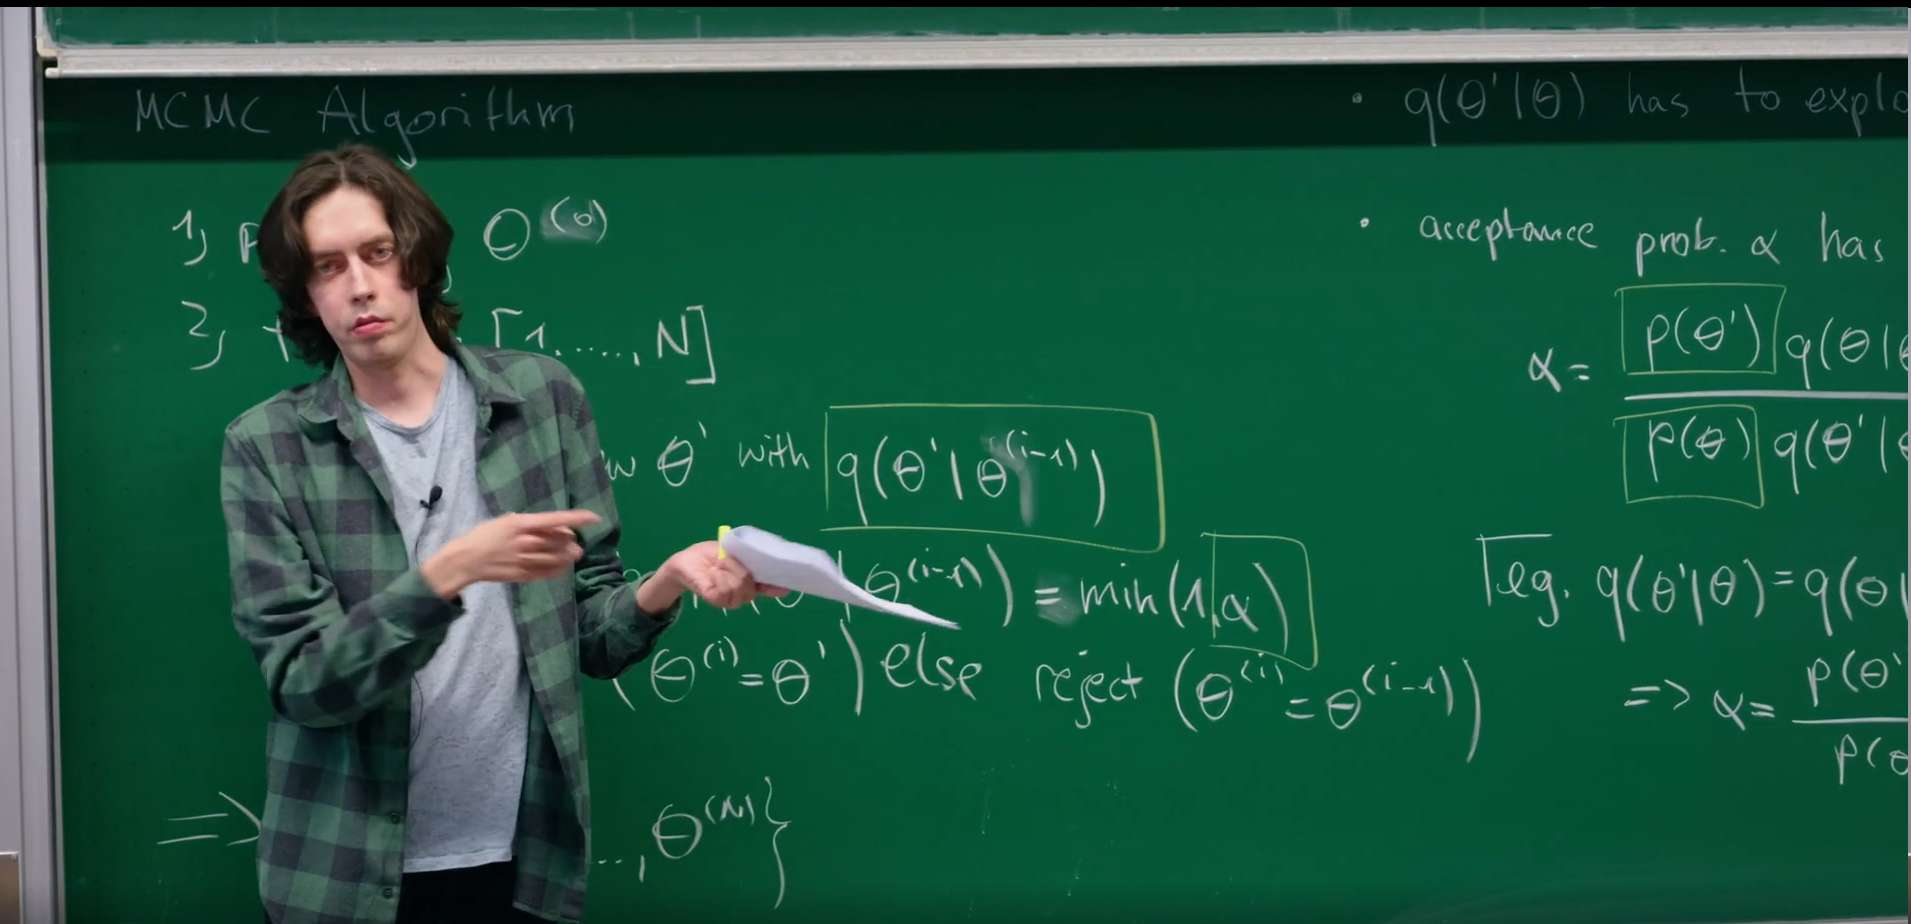 MCMC Algorithm
1) θ^(0)
2) [1, ...., N]
θ' with q(θ'|θ^(i-1))
θ^(i-1)) = min(1, α)
(θ^(i) = θ') else reject (θ^(i) = θ^(i-1))
=> .., θ^(N)}
• q(θ'|θ) has to
• acceptance prob. α has
α = p(θ') q(θ|
p(θ) q(θ'|
eg. q(θ'|θ) = q(θ|
=> α = p(θ'
p(θ